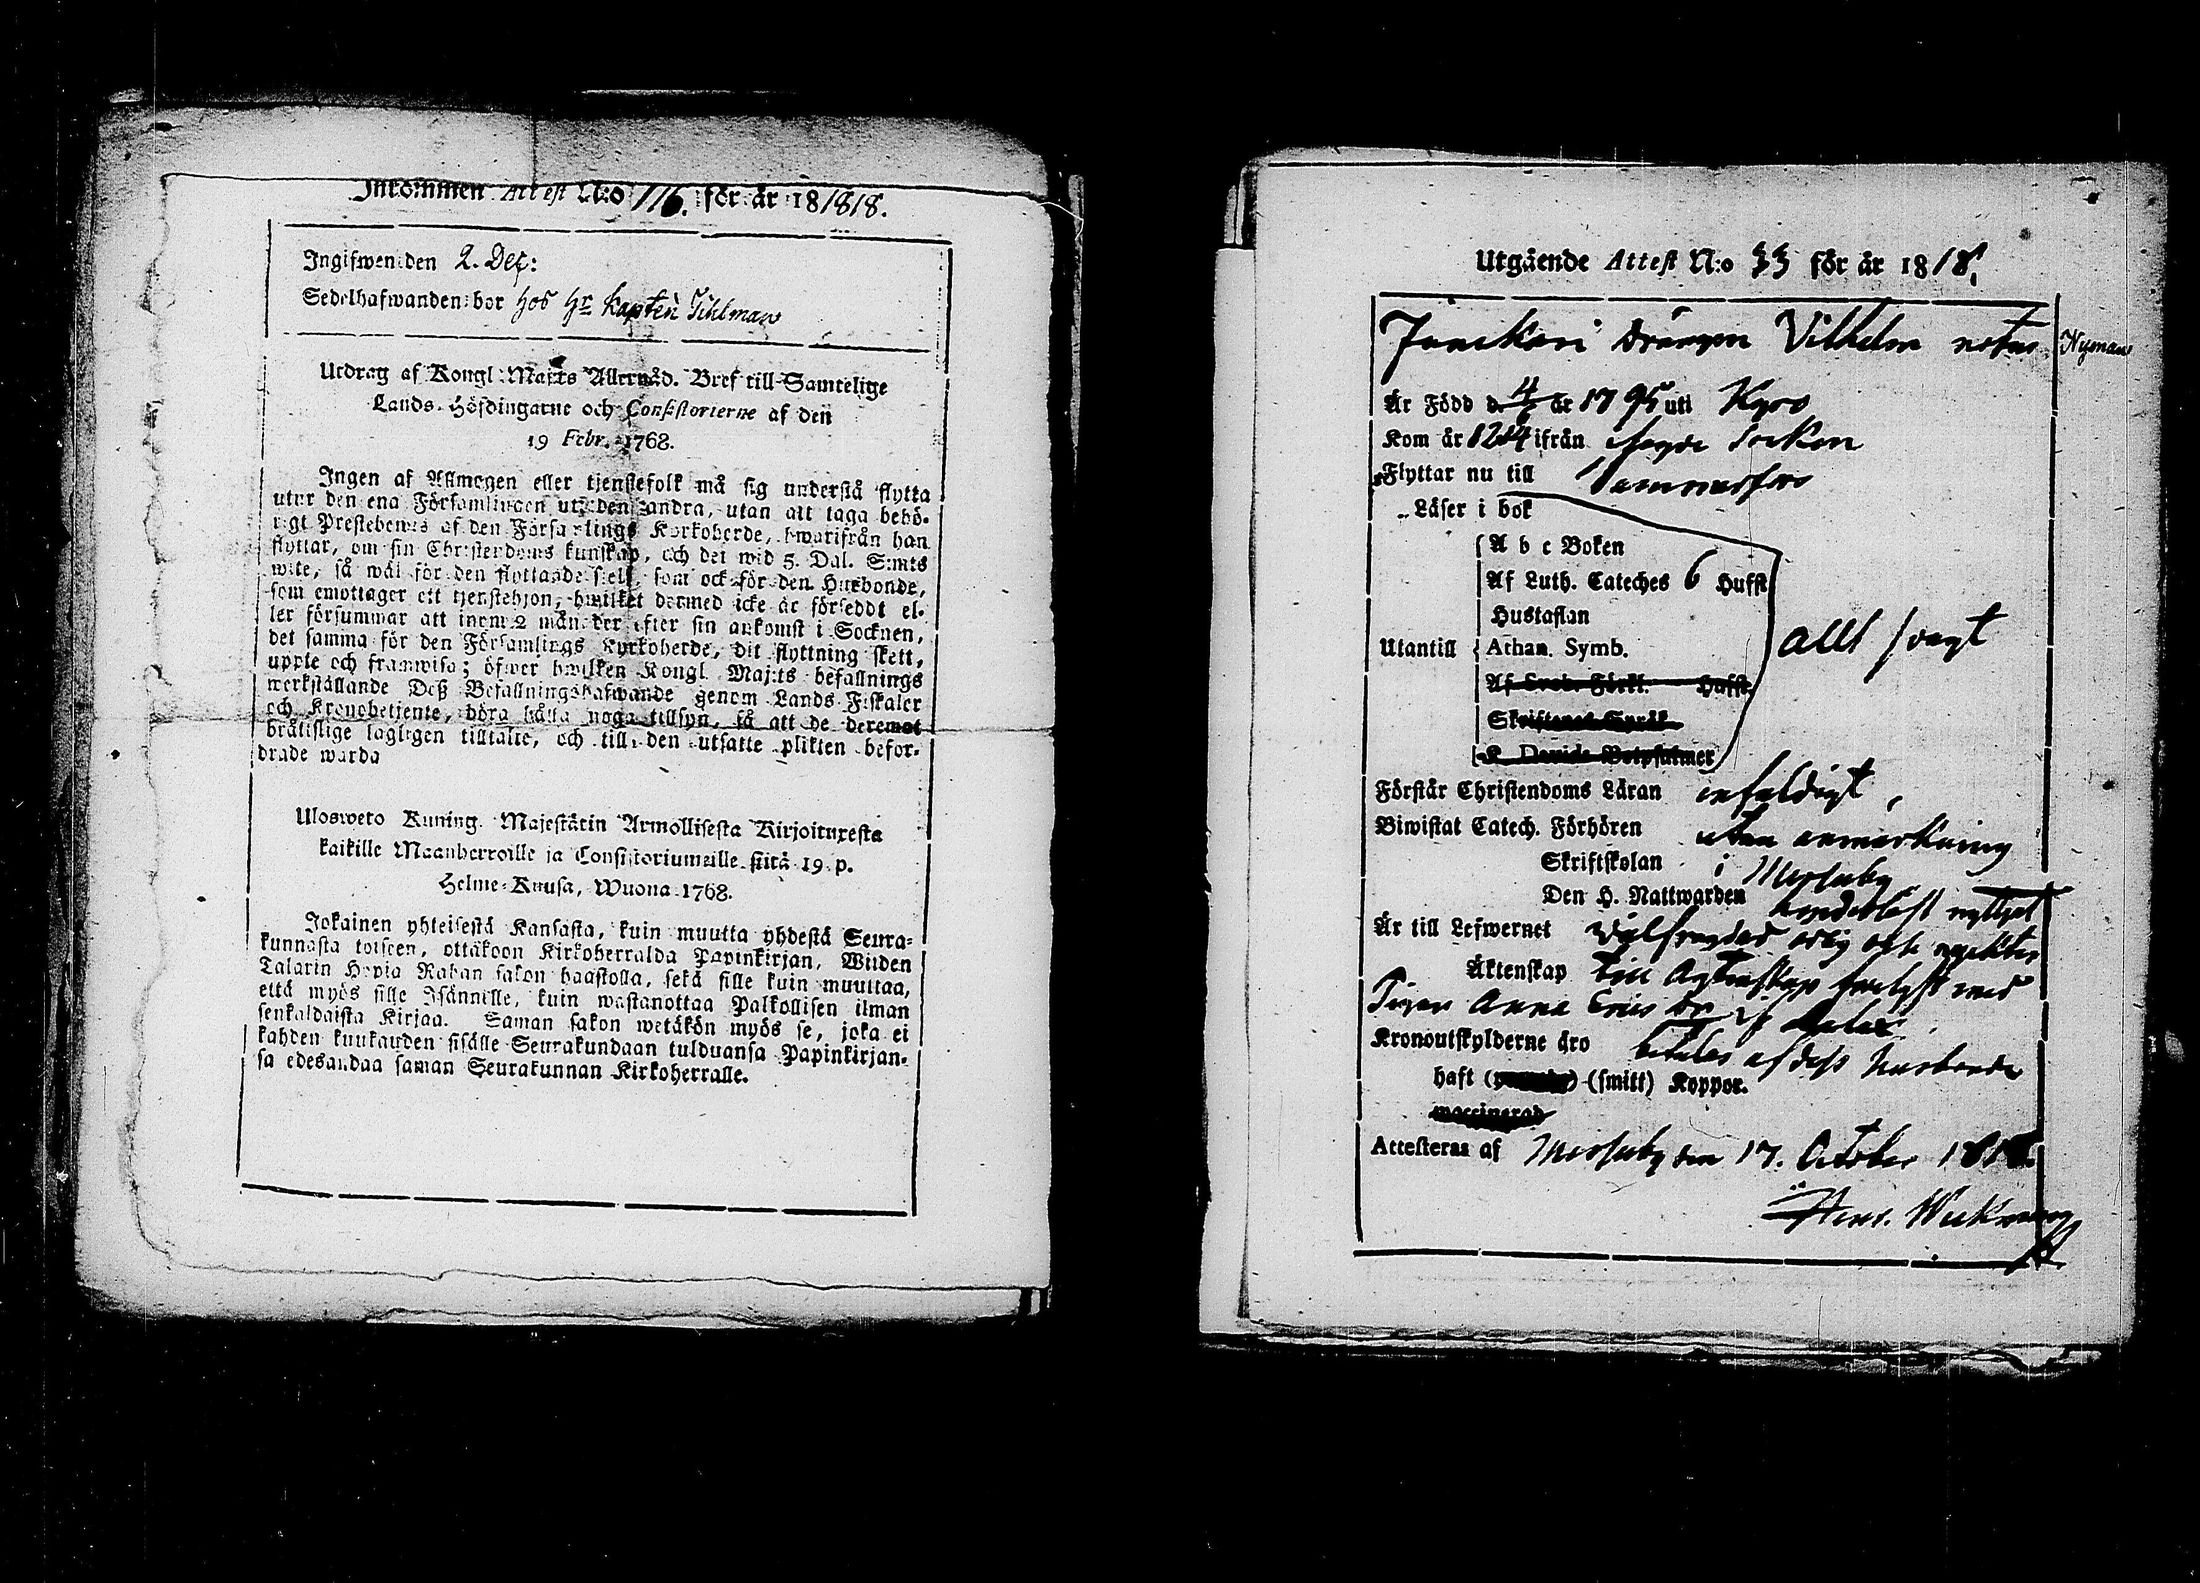 Inkommen Attest N:o 116. för år 181818.
Ingifwen den 2. Dec:
Sedelhafwanden bor hos Hr Kapten Tihlman
Utdrag af Kongl. Maj:ts Allernåd. Bref till Samtelige
Lands-Höfdingarne och Consistorierne af den
19 Febr. 1768.
Ingen af Allmogen eller tjenstefolk må sig understå flytta
utur den ena Församlingen uti den andra, utan att taga behö-
rigt Prestebewis af den Församlings Kyrkoherde, hwarifrån han
flyttar, om sin Christendoms kunskap, och det wid 5. Dal. S:mts
wite, så wäl för den flyttande sjelf, som ock för den Husbonde,
som emottager ett tjenstehjon, hwilket dermed icke är försedt el-
ler försummar att inom 2 månader efter sin ankomst i Socknen,
det samma för den Församlings Kyrkoherde, dit flyttning skett,
uppte och framwisa; öfwer hwilken Kongl. Maj:ts befallnings
werkställande Deß Befallningshafwande genom Lands Fiskaler
och Kronobetjente, böra hålla noga tillsyn, så att de deremot
bråttslige lagligen tilltalte, och till den utsatte plikten befor-
drade warda
Ulosweto Kuning. Majestätin Armollisesta Kirjoituxesta
kaikille Maanherroille ja Consistoriumeille siitä 19. p.
Helme-Kuusa, Wuonna 1768.
Jokainen yhteisestä Kansasta, kuin muutta yhdestä Seura-
kunnasta toiseen, ottakoon Kirkoherralda Papinkirjan, Wiiden
Talarin Hopia Rahan sakon haastolla, sekä sille kuin muuttaa,
että myös sille Isännälle, kuin wastanottaa Palkollisen ilman
senkaldaista Kirjaa. Saman sakon wetäkön myös se, joka ei
kahden kuukauden sisälle Seurakundaan tulduansa Papinkirjan-
sa edesandaa saman Seurakunnan Kirkoherralle.
Utgående Attest N:o 33 för år 1818.
Drängen Vilhelm Nyman
Är Född d. 4/6 år 1795 uti Kyro
Kom år 1814 ifrån socken
Flyttar nu till Tammerfors
Läser i bok
A b c Boken
Af Luth. Cateches 6 Hufst
Hustaflan
Utantill Athan. Symb. allt svagt
Af Sveb. Förkl. Hufst.
Skriftenes Språk
K. Davids Botpsalmer
Förstår Christendoms Läran enfaldigt,
Biwistat Catech. Förhören utan anmärkning
Skriftskolan i Messuby
Den H. Nattwarden nyttjat
Är till Lefwernet wälfrejdad
Äktenskap till Agtenskap med
Pigan Anna
Kronoutskylderne äro betalas af dess husbonde
haft (smitt) Koppor.
vaccinerad
Attesteras af Messuby den 17. October 1818.